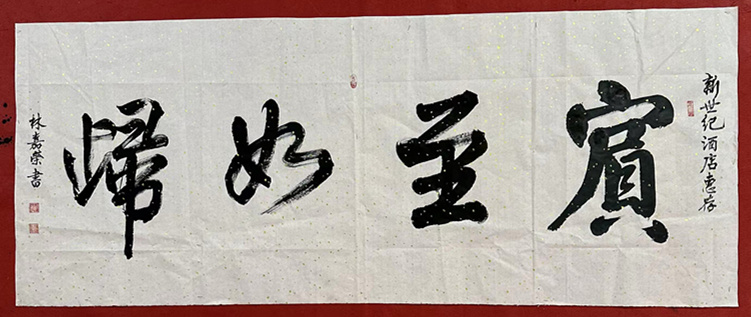 新世纪酒店惠存
賓至如歸
林嘉榮書